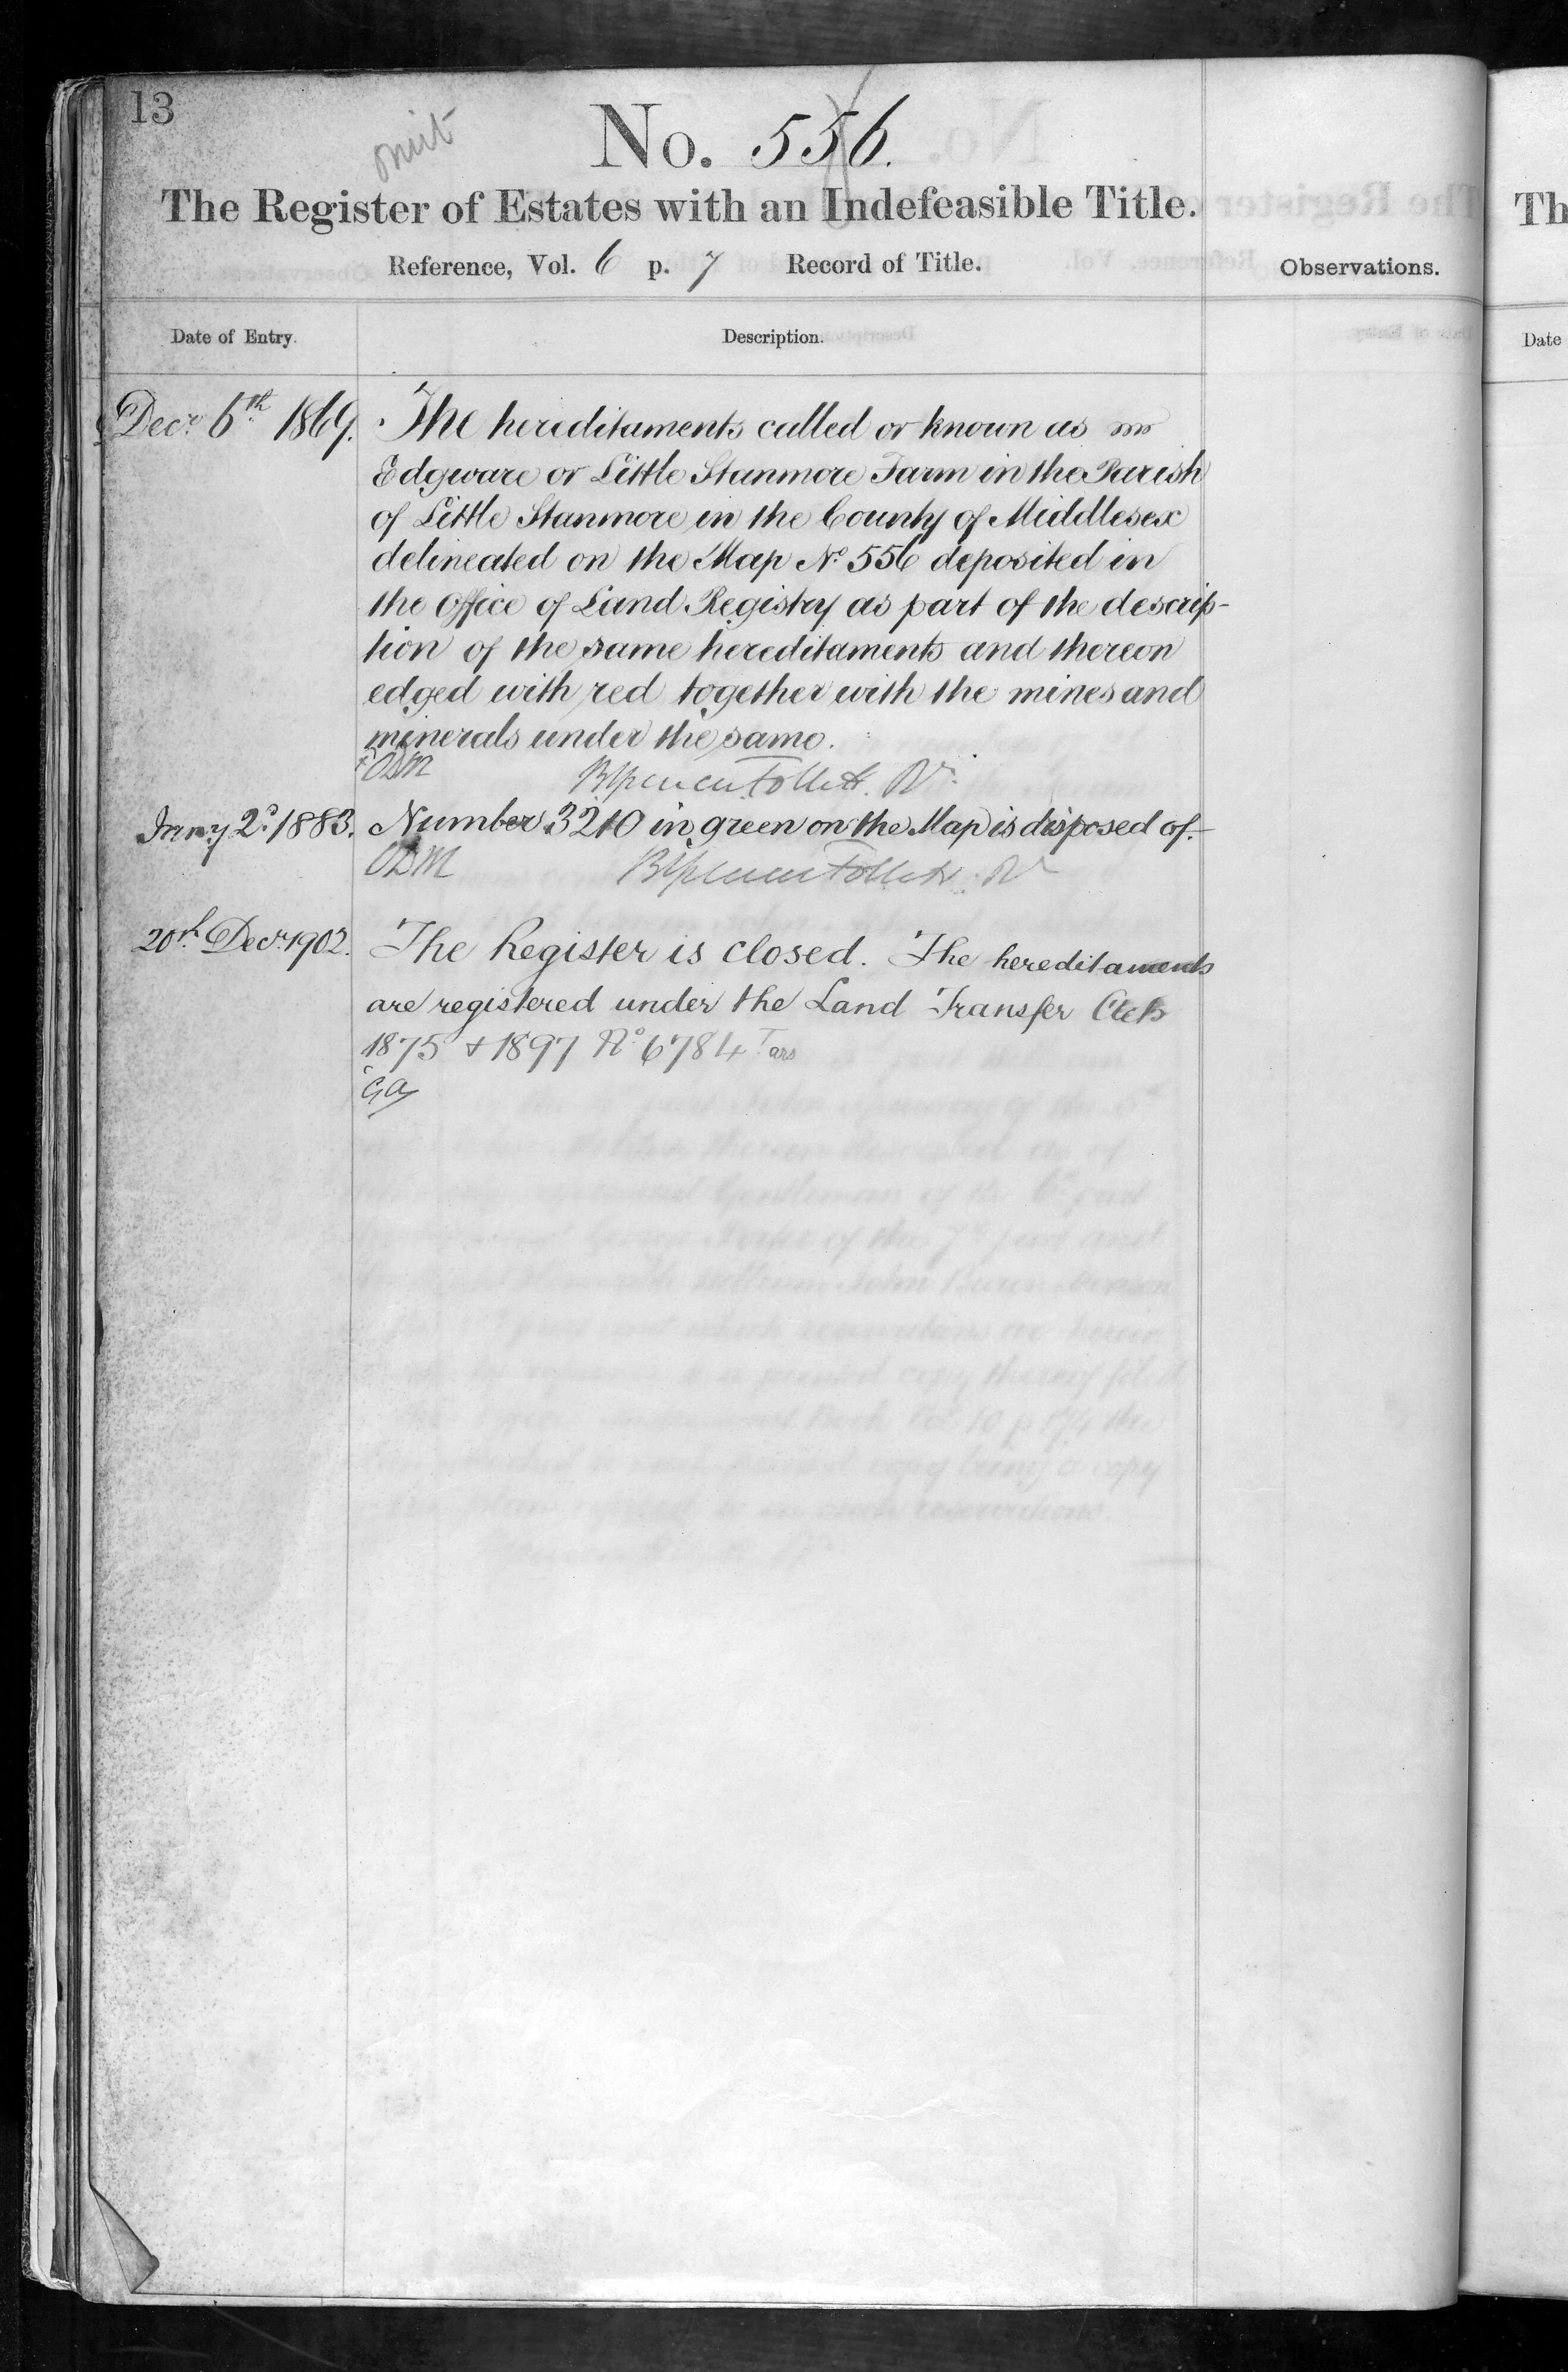 13
omit
No. 556.
The Register of Estates with an Indefeasible Title.
Reference, Vol. 6 p. 7 Record of Title.
Observations.
Date of Entry. Description.
Decr. 6th 1869. The hereditaments called or known as
Edgware or Little Stanmore Farm in the Parish
of Little Stanmore in the County of Middlesex
delineated on the Map No. 556 deposited in
the Office of Land Registry as part of the descrip-
tion of the same hereditaments and thereon
edged with red together with the mines and
minerals under the same.
ODM Brent Spencer Follett. Rr.
Jany. 2d. 1883. Number 3210 in green on the Map is disposed of.
ODM Brent Spencer Follett. Rr
20th Decr. 1902. The Register is closed. The hereditaments
are registered under the Land Transfer Acts
1875 & 1897 No 6784
Th
Date